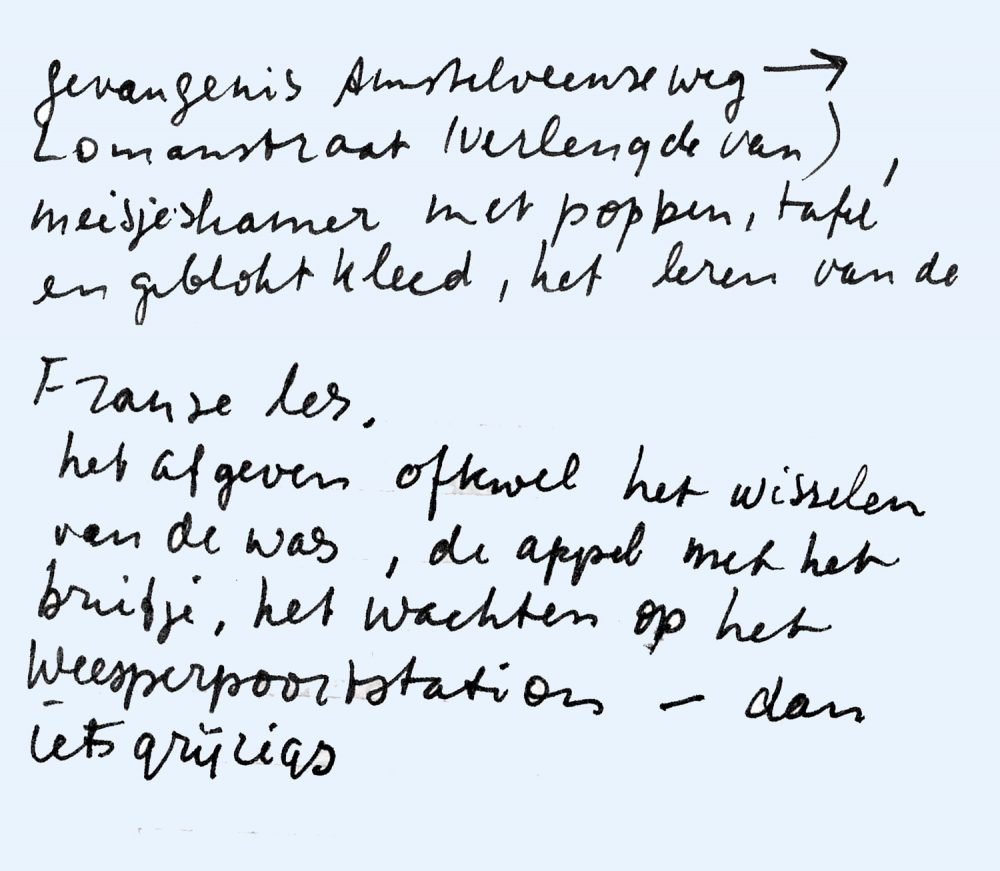 gevangenis Amstelveenseweg →
Lomanstraat (verlengde van),
meisjeskamer met poppen, tafel
en geblokt kleed, het leren van de
Franse les.
het afgeven oftewel het wisselen
van de was, de appel met het
bruidje, het wachten op het
Weesperpoortstation – dan
iets grijzigs